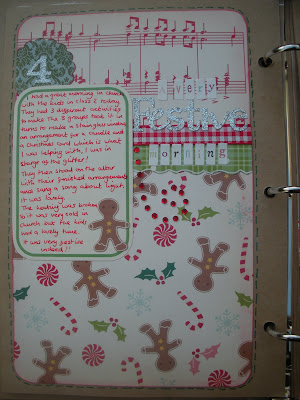 4
I had a great morning in church
with the kids in class 2 today.
They had 3 different activities
to make the 3 groups took it in
turns to make a stained glass window
an arrangement for a candle and
a Christmas Card which is what
I was helping with, I was in
charge of the glitter!
They then stood on the altar
with their finished arrangements
and sang a song about light,
it was lovely.
The heating was broken
so it was very cold in
church but the kids
had a lovely time.
It was very festive
indeed!!
a very
Festive
morning